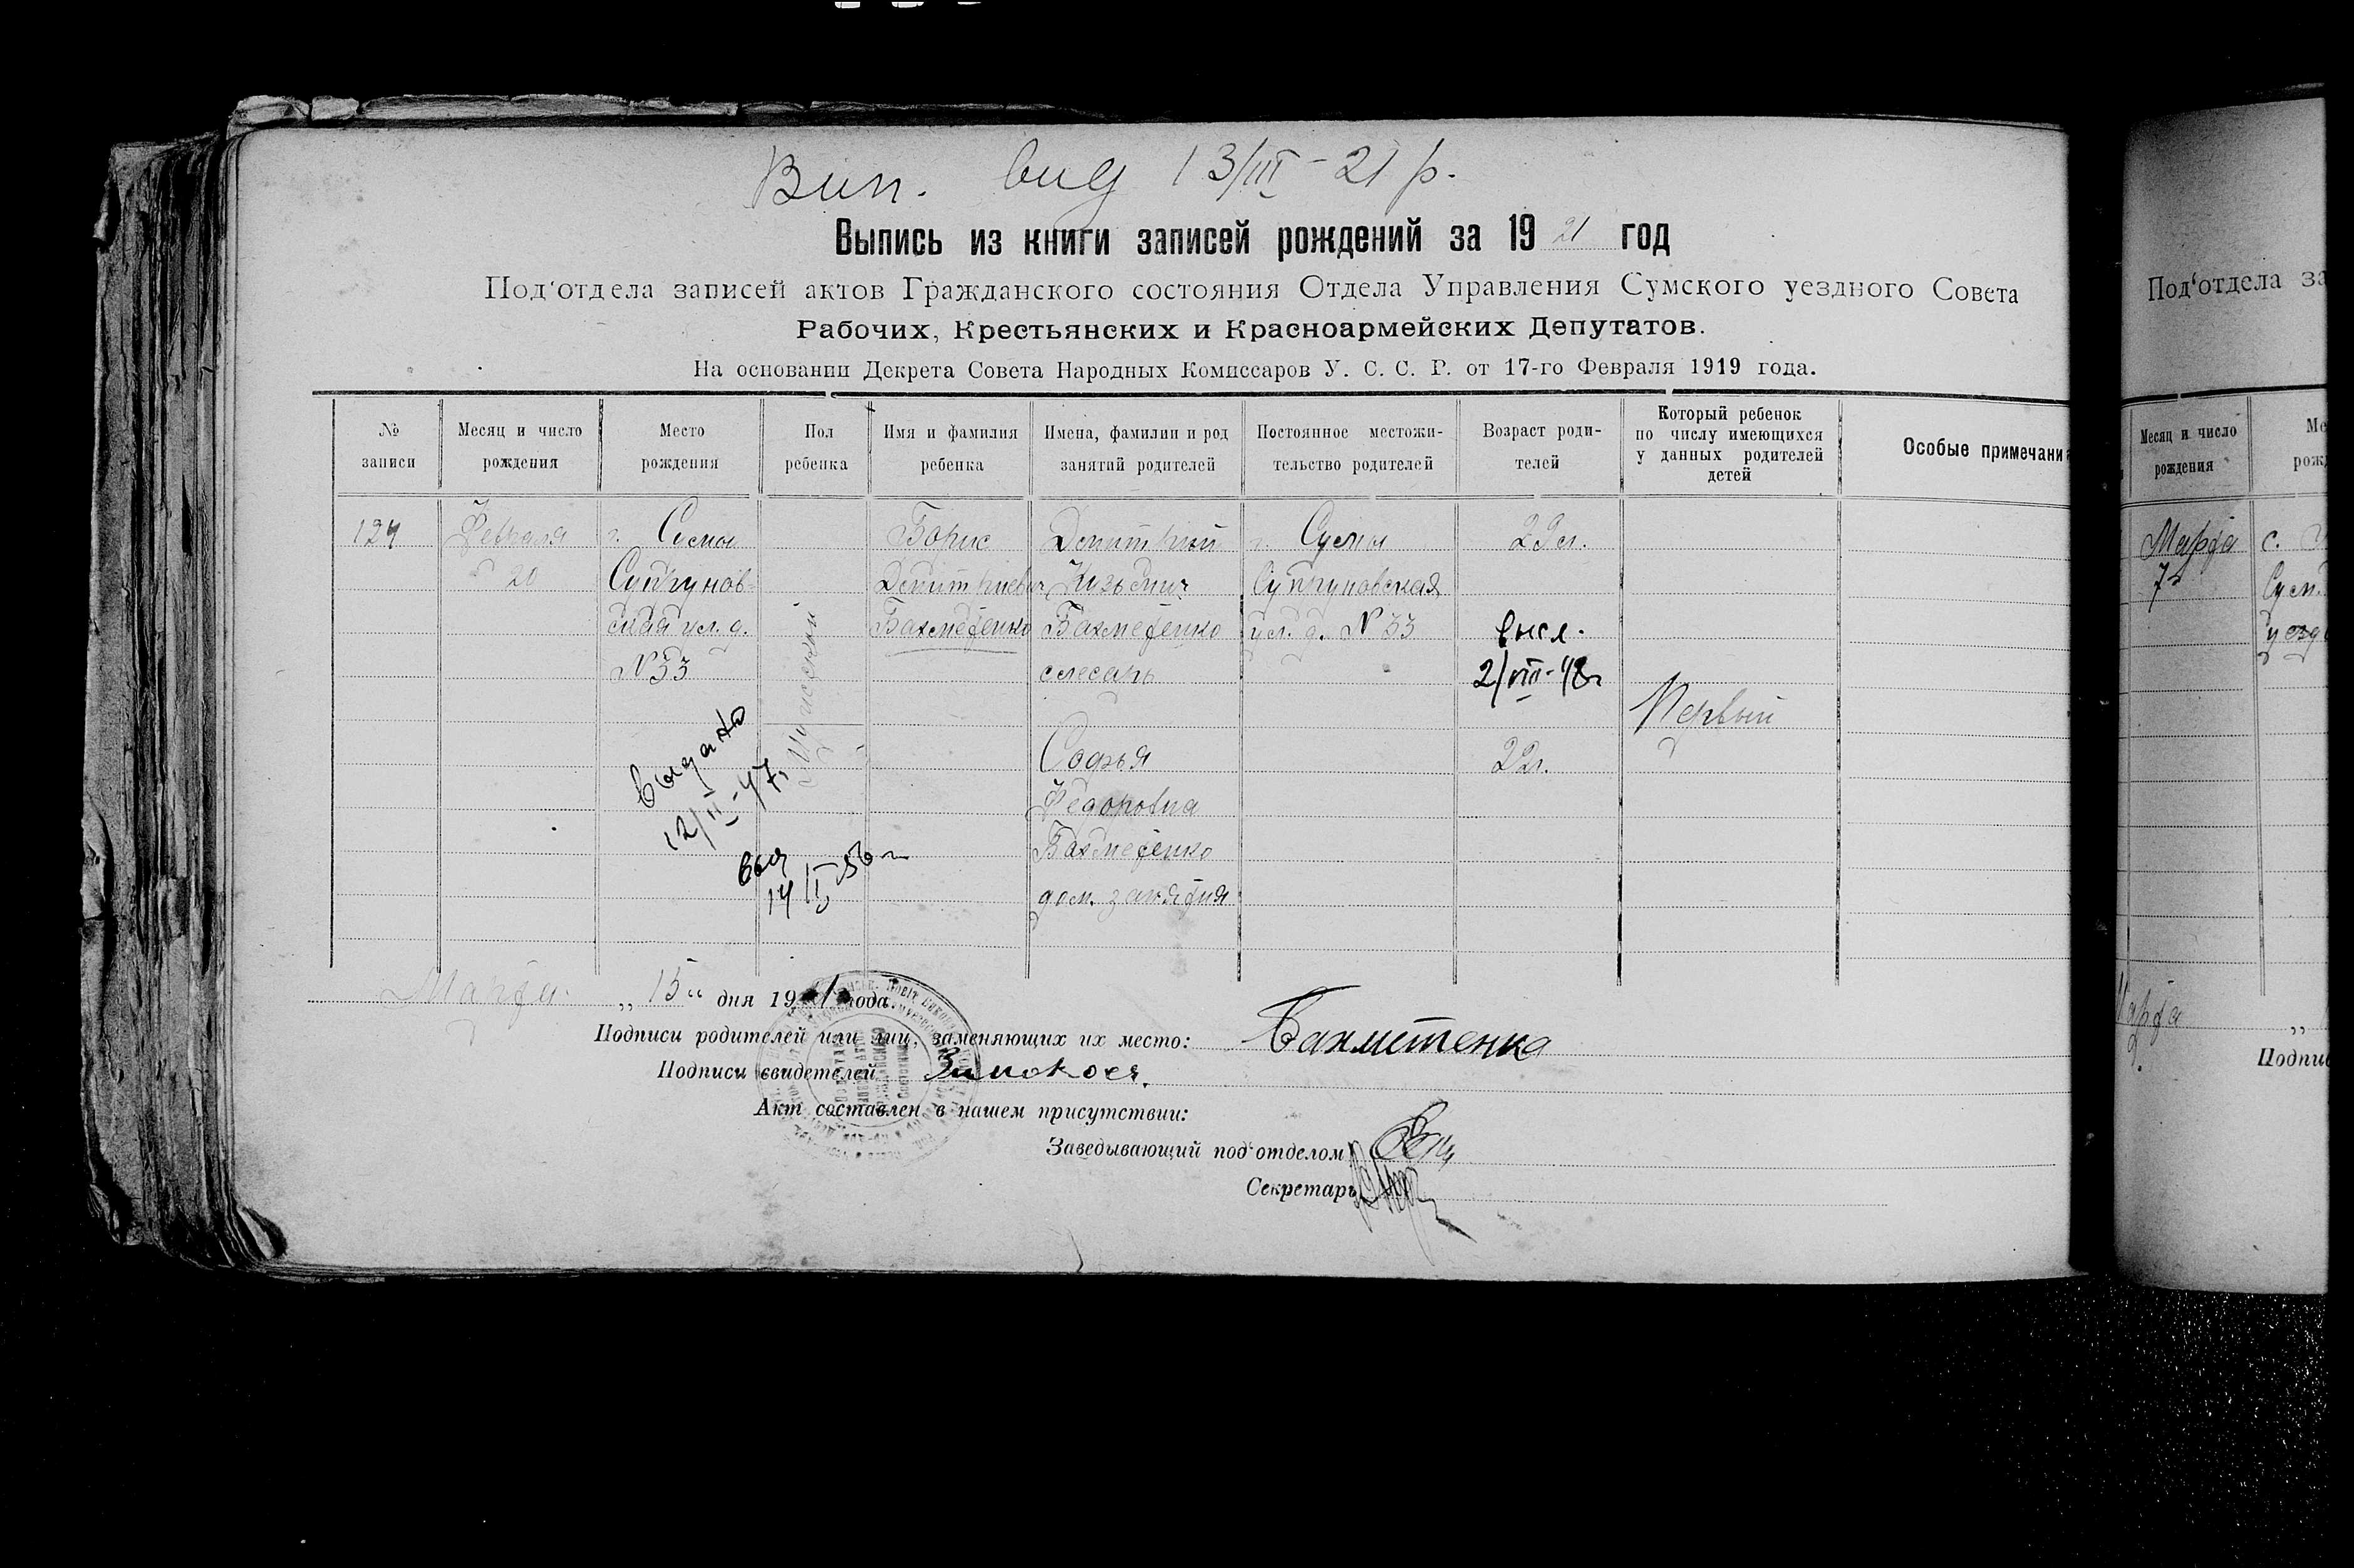 Вип. вид 13/III-21 р.
Выпись из книги записей рождений за 1921 год
Под'отдела записей актов Гражданского состояния Отдела Управления Сумского уездного Совета
Рабочих, Крестьянских и Красноармейских Депутатов.
На основании Декрета Совета Народных Комиссаров У. С. С. Р. от 17-го Февраля 1919 года.
№ записи
Месяц и число рождения
Место рождения
Пол ребенка
Имя и фамилия ребенка
Имена, фамилии и род занятий родителей
Постоянное местожительство родителей
Возраст родителей
Который ребенок по числу имеющихся у данных родителей детей
Особые примечани
124
Февраля
20
г. Сумы
Супрунов-
ская ул. д.
N 33
Мужеский
Борис
Дмитриевич
Бахметенко
Дмитрий
Кузьмич
Бахметенко
слесарь
Софья
Федоровна
Бахметенко
дом. занятия
г. Сумы
Супруновская
ул. д. N 33
22л.
высл.
2/VIII-48г
22г.
Первый
выдано
12/II-47г
14/II 56 г
Марта „15“ дня 1921 года.
Подписи родителей или лиц, заменяющих их место: Бахметенко
Подписи свидетелей
Акт составлен в нашем присутствии:
Заведывающий под'отделом
Секретарь
Под'отдела за
Месяц и число
рождения
Ме
рож
Марта
7
с.
Сум.
уезд
Марта „
Подпи